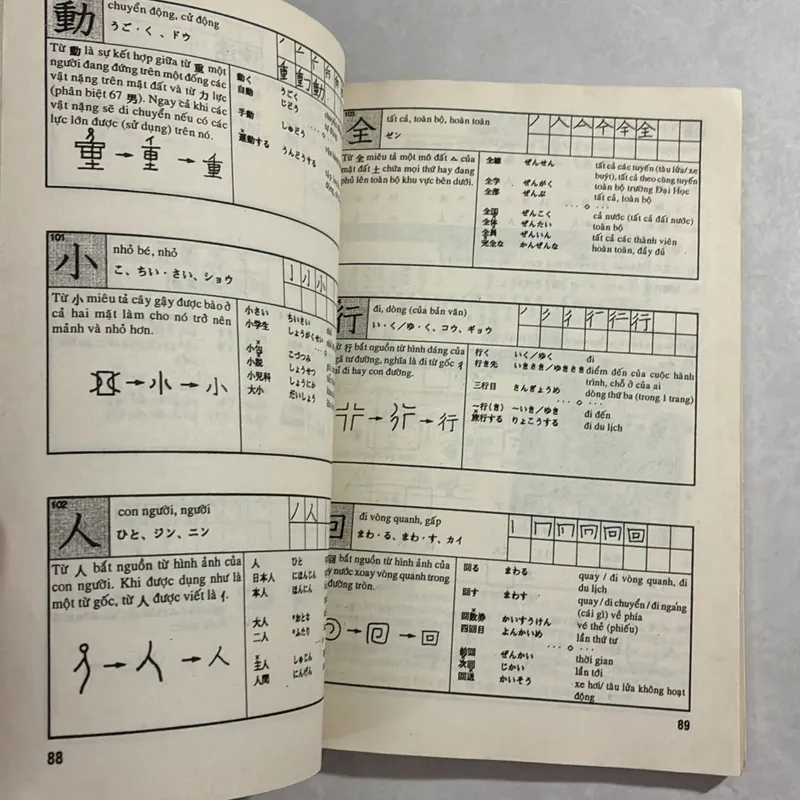 動
chuyển động, cử động
うご・く、ドウ
Từ 動 là sự kết hợp giữa từ 重 một
người đang đứng trên một đống các
vật nặng trên mặt đất và từ 力 lực
(phân biệt 67 男). Ngay cả khi các
vật nặng sẽ di chuyển nếu có các
lực lớn được (sử dụng) trên nó.
動く うごく
自動 じどう
手動 しゅどう
運動する うんどうする
重 → 重
101
小
nhỏ bé, nhỏ
こ、ちい・さい、ショウ
Từ 小 miêu tả cây gậy được bào ở
cả hai mặt làm cho nó trở nên
mảnh và nhỏ hơn.
小さい ちいさい
小学生 しょうがくせい
小包 こづつみ
小説 しょうせつ
小児科 しょうにか
大小 だいしょう
→ 小 → 小
102
人
con người, người
ひと、ジン、ニン
Từ 人 bắt nguồn từ hình ảnh của
con người. Khi được dụng như là
một từ gốc, từ 人 được viết là亻.
人 ひと
日本人 にほんじん
本人 ほんにん
大人 *おとな
二人 *ふたり
主人 しゅじん
人間 にんげん
→ 人 → 人
88
103
全
tất cả, toàn bộ, hoàn toàn
ゼン
Từ 全 miêu tả một mô đất của
mặt đất 土 chứa mọi thứ hay đang
phủ lên toàn bộ khu vực bên dưới.
全線 ぜんせん tất cả các tuyến (tàu lửa/xe
buýt), tất cả theo cùng tuyến
全学 ぜんがく toàn bộ trường Đại Học
全部 ぜんぶ tất cả, toàn bộ
全国 ぜんこく cả nước (tất cả đất nước)
全体 ぜんたい toàn bộ
全員 ぜんいん tất cả các thành viên
完全な かんぜんな hoàn toàn, đầy đủ
行
đi, dòng (của bản văn)
い・く/ゆ・く、コウ、ギョウ
行 bắt nguồn từ hình dáng của
tư đường, nghĩa là đi từ gốc 彳
đi hay con đường.
→ 行
行く いく/ゆく đi
行き先 いきさき/ゆきさき điểm đến của cuộc hành
trình, chỗ ở của ai
三行目 さんぎょうめ dòng thứ ba (trong 1 trang)
〜行(き) 〜いき/ゆき đi đến
旅行する りょこうする đi du lịch
回
đi vòng quanh, gấp
まわ・る、まわ・す、カイ
回 bắt nguồn từ hình ảnh của
nước xoay vòng quanh trong
đường tròn.
→ 回
回る まわる quay / đi vòng quanh, đi
du lịch
回す まわす quay / di chuyển / đi ngang
(cái gì) về phía
回数券 かいすうけん vé thẻ (phiếu)
四回目 よんかいめ lần thứ tư
前回 ぜんかい thời gian
次回 じかい lần tới
回送 かいそう xe hơi/ tàu lửa không hoạt
động
89